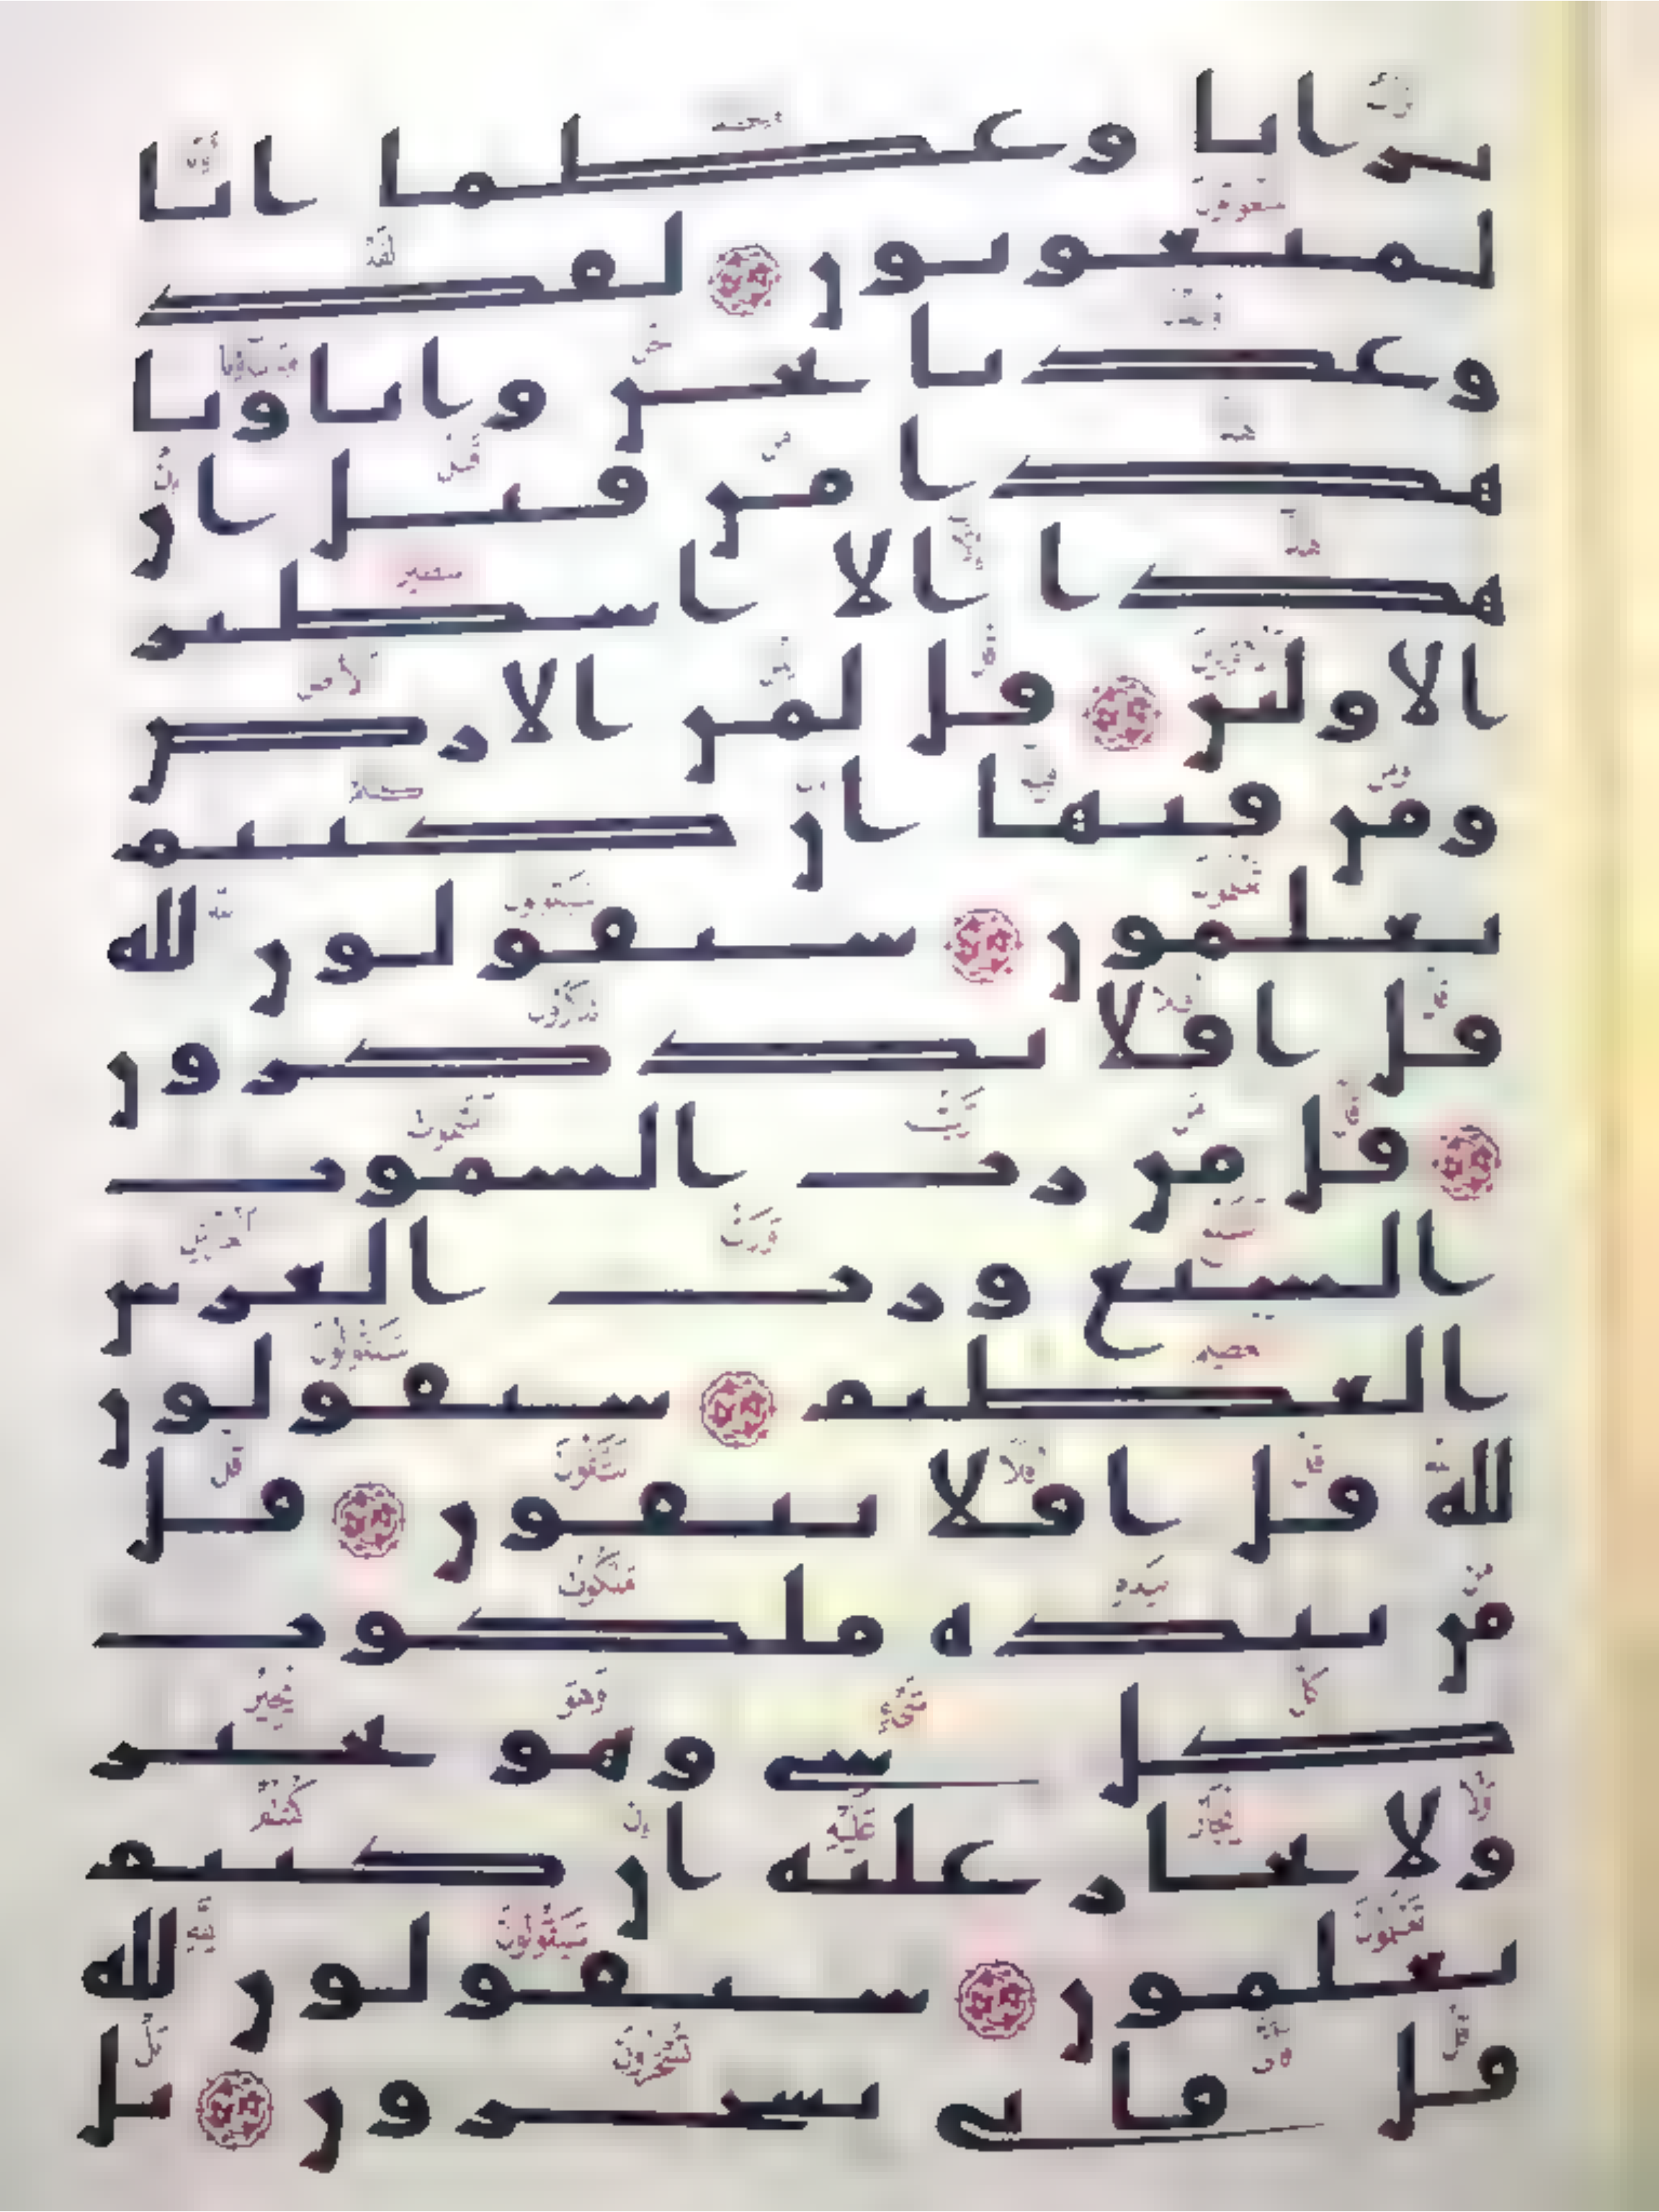 ترابا وعظما انا
لمبعوثون لقد
وعدنا نحن واباونا
هذا من قبل ان
هذا الا اسطير
الاولين قل لمن الارض
ومن فيها ان كنتم
تعلمون سيقولون لله
قل افلا تذكرون
قل من رب السموت
السبع ورب العرش
العظيم سيقولون
لله قل افلا تتقون قل
من بيده ملكوت
كل شى وهو يجير
ولا يجار عليه ان كنتم
تعلمون سيقولون لله
قل فانى تسحرون بل